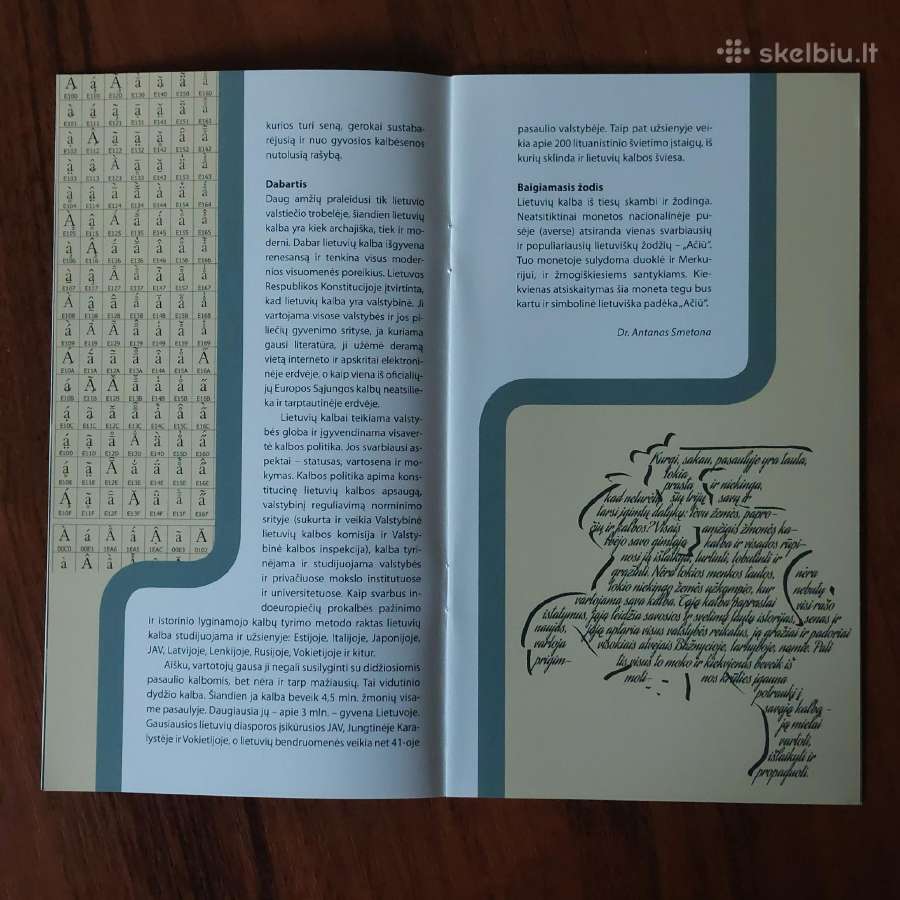 skelbiu.lt
kurios turi seną, gerokai sustaba-
rėjusią ir nuo gyvosios kalbėsenos
nutolusią rašybą.
Dabartis
Daug amžių praleidusi tik lietuvio
valstiečio trobelėje, šiandien lietuvių
kalba yra kiek archajiška, tiek ir mo-
derni. Dabar lietuvių kalba išgyvena
renesansą ir tenkina visus moder-
nios visuomenės poreikius. Lietuvos
Respublikos Konstitucijoje įtvirtinta,
kad lietuvių kalba yra valstybinė. Ji
vartojama visose valstybės ir jos pi-
liečių gyvenimo srityse, ja kuriama
gausi literatūra, ji užėmė deramą
vietą interneto ir apskritai elektroni-
nėje erdvėje, o kaip viena iš oficialių-
jų Europos Sąjungos kalbų neatsilie-
ka ir tarptautinėje erdvėje.
Lietuvių kalbai teikiama valsty-
bės globa ir įgyvendinama visaver-
tė kalbos politika. Jos svarbiausi as-
pektai – statusas, vartosena ir mo-
kymas. Kalbos politika apima konsti-
tucinę lietuvių kalbos apsaugą,
valstybinį reguliavimą norminimo
srityje (sukurta ir veikia Valstybinė
lietuvių kalbos komisija ir Valsty-
binė kalbos inspekcija), kalba tyri-
nėjama ir studijuojama valstybės
ir privačiuose mokslo institutuose
ir universitetuose. Kaip svarbus in-
doeuropiečių prokalbės pažinimo
ir istorinio lyginamojo kalbų tyrimo metodo raktas lietuvių
kalba studijuojama ir užsienyje: Estijoje, Italijoje, Japonijoje,
JAV, Latvijoje, Lenkijoje, Rusijoje, Vokietijoje ir kitur.
Aišku, vartotojų gausa ji negali susilyginti su didžiosiomis
pasaulio kalbomis, bet nėra ir tarp mažiausių. Tai vidutinio
dydžio kalba. Šiandien ja kalba beveik 4,5 mln. žmonių visa-
me pasaulyje. Daugiausia jų – apie 3 mln. – gyvena Lietuvoje.
Gausiausios lietuvių diasporos įsikūrusios JAV, Jungtinėje Kara-
lystėje ir Vokietijoje, o lietuvių bendruomenės veikia net 41-oje
pasaulio valstybėje. Taip pat užsienyje vei-
kia apie 200 lituanistinio švietimo įstaigų, iš
kurių sklinda ir lietuvių kalbos šviesa.
Baigiamasis žodis
Lietuvių kalba iš tiesų skambi ir žodinga.
Neatsitiktinai monetos nacionalinėje pu-
sėje (averse) atsiranda vienas svarbiausių
ir populiariausių lietuviškų žodžių – „Ačiū“.
Tuo monetoje sulydoma duoklė ir Merku-
rijui, ir žmogiškiesiems santykiams. Kie-
kvienas atsiskaitymas šia moneta tegu bus
kartu ir simbolinė lietuviška padėka „Ačiū“.
Dr. Antanas Smetona
Kurgi, sakau, pasaulyje yra tauta,
tokia
prasta ir niekinga,
kad neturėtų šių trijų savų ir
tarsi įgimtų dalykų: tėvų žemės, papro-
čių ir kalbos? Visais amžiais žmonės ka-
bėjo savo gimtąja kalba ir visados rūpi-
nosi ją išlaikyti, turtinti, tobulinti ir
gražinti. Nėra tokios menkos tautos,
tokio niekingo žemės užkampio, kur nėra nebūtų
vartojama sava kalba. Tąja kalba paprastai visi rašo
įstatymus, jąja leidžia savosios ir svetimų tautų istorijas, senas ir
naujas, jąja aptaria visus valstybės reikalus, ją gražiai ir padoriai
vartoja visokiais atvejais Bažnyčioje, tarnyboje, namie. Pati
prigim-
tis visus to moko ir kiekvienas beveik iš
moti-
nos krūties įgauna
potraukį į
savąją kalbą –
ją mielai
vartoti,
išlaikyti ir
propaguoti.